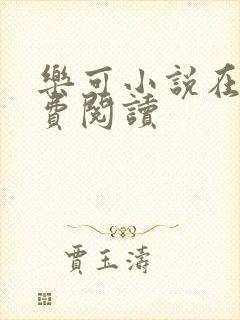 樂可小說在
費閱讀
賈玉濤